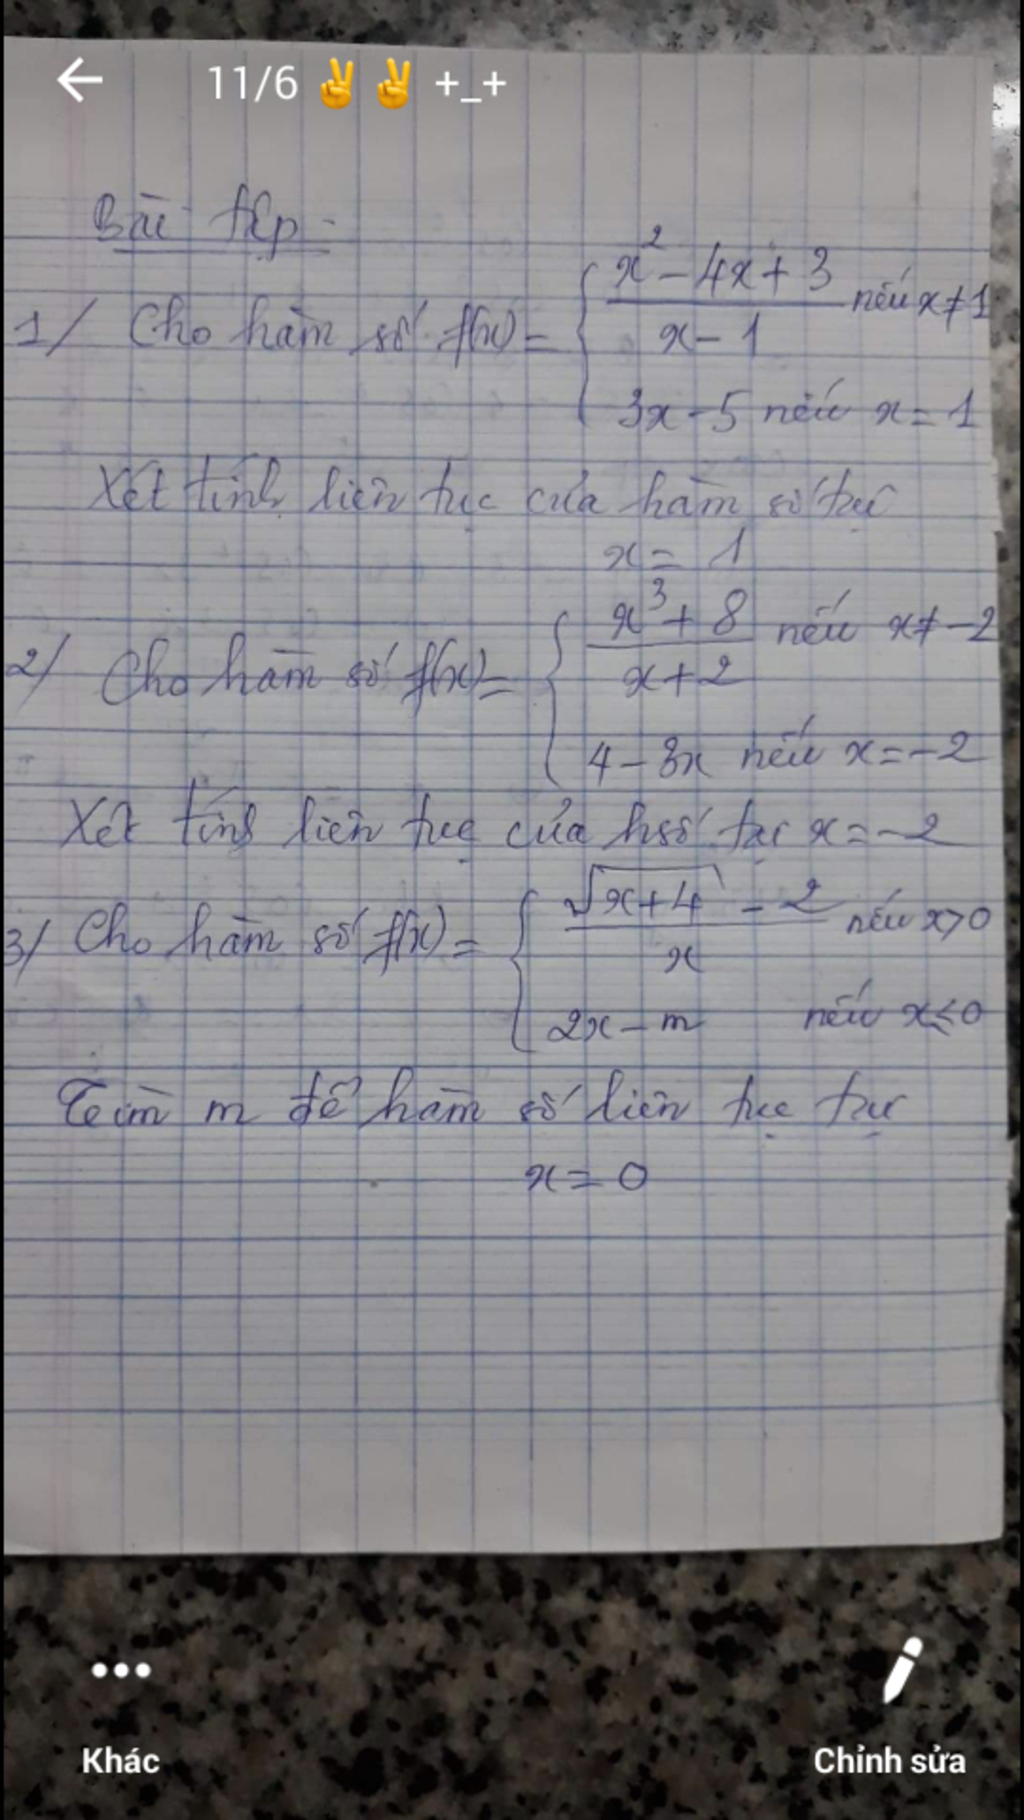 11/6 ✌✌ +_+
Bài tập
1/ Cho hàm số f(x) = { (x² - 4x + 3)/(x - 1) nếu x ≠ 1
3x - 5 nếu x = 1
Xét tính liên tục của hàm số tại
x = 1
2/ Cho hàm số f(x) = { (x³ + 8)/(x + 2) nếu x ≠ -2
4 - 3x nếu x = -2
Xét tính liên tục của hsố tại x = -2
3/ Cho hàm số f(x) = { (√(x+4) - 2)/x nếu x > 0
2x - m nếu x ≤ 0
Tìm m để hàm số liên tục tại
x = 0
Khác
Chỉnh sửa